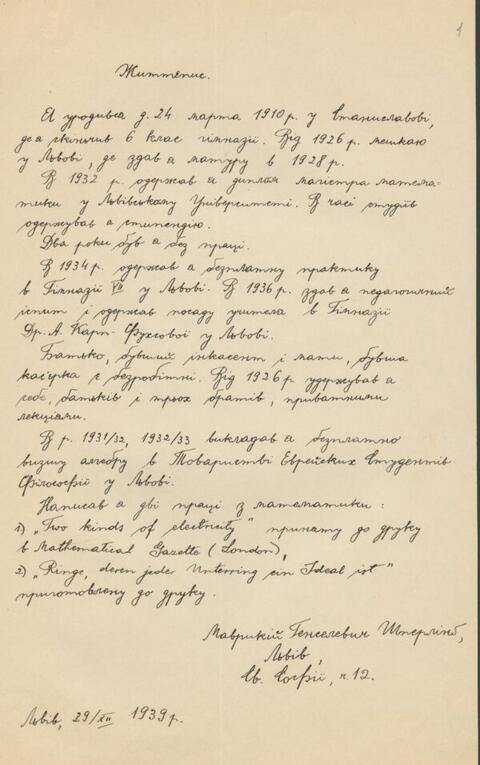 1
Життєпис.
Я уродився д. 24 марта 1910 р. у Станиславові,
де я скінчив 6 клас гімназії. Від 1926 р. мешкаю
у Львові, де здав я матуру в 1928 р.
В 1932 р. одержав я диплом магістра матема-
тики у Львівському Університеті. В часі студіїв
одержував я стипендію.
Два роки був я без праці.
В 1934 р. одержав я безплатну практику
в Гімназії VII у Львові. В 1936 р. здав я педагогічний
іспит і одержав посаду учителя в Гімназії
Др. А. Карп-Фуксової у Львові.
Батько, бувший інкасент і мати, бувша
касієрка є безробітні. Від 1926 р. удержував я
себе, батьків і трьох братів, приватними
лекціями.
В р. 1931/32, 1932/33 викладав я безплатно
висшу алгебру в Товаристві Еврейских Студентів
Філософії у Львові.
Написав я дві праці з математики:
1) „Two kinds of electricity" приняту до друку
в Mathematical Gazette (London),
2) „Ringe, deren jeder Unterring ein Ideal ist"
приготовлену до друку.
Маврикій Генселевич Шперлінг,
Львів,
Св. Софії, ч. 12.
Львів, 29/XII 1939 р.